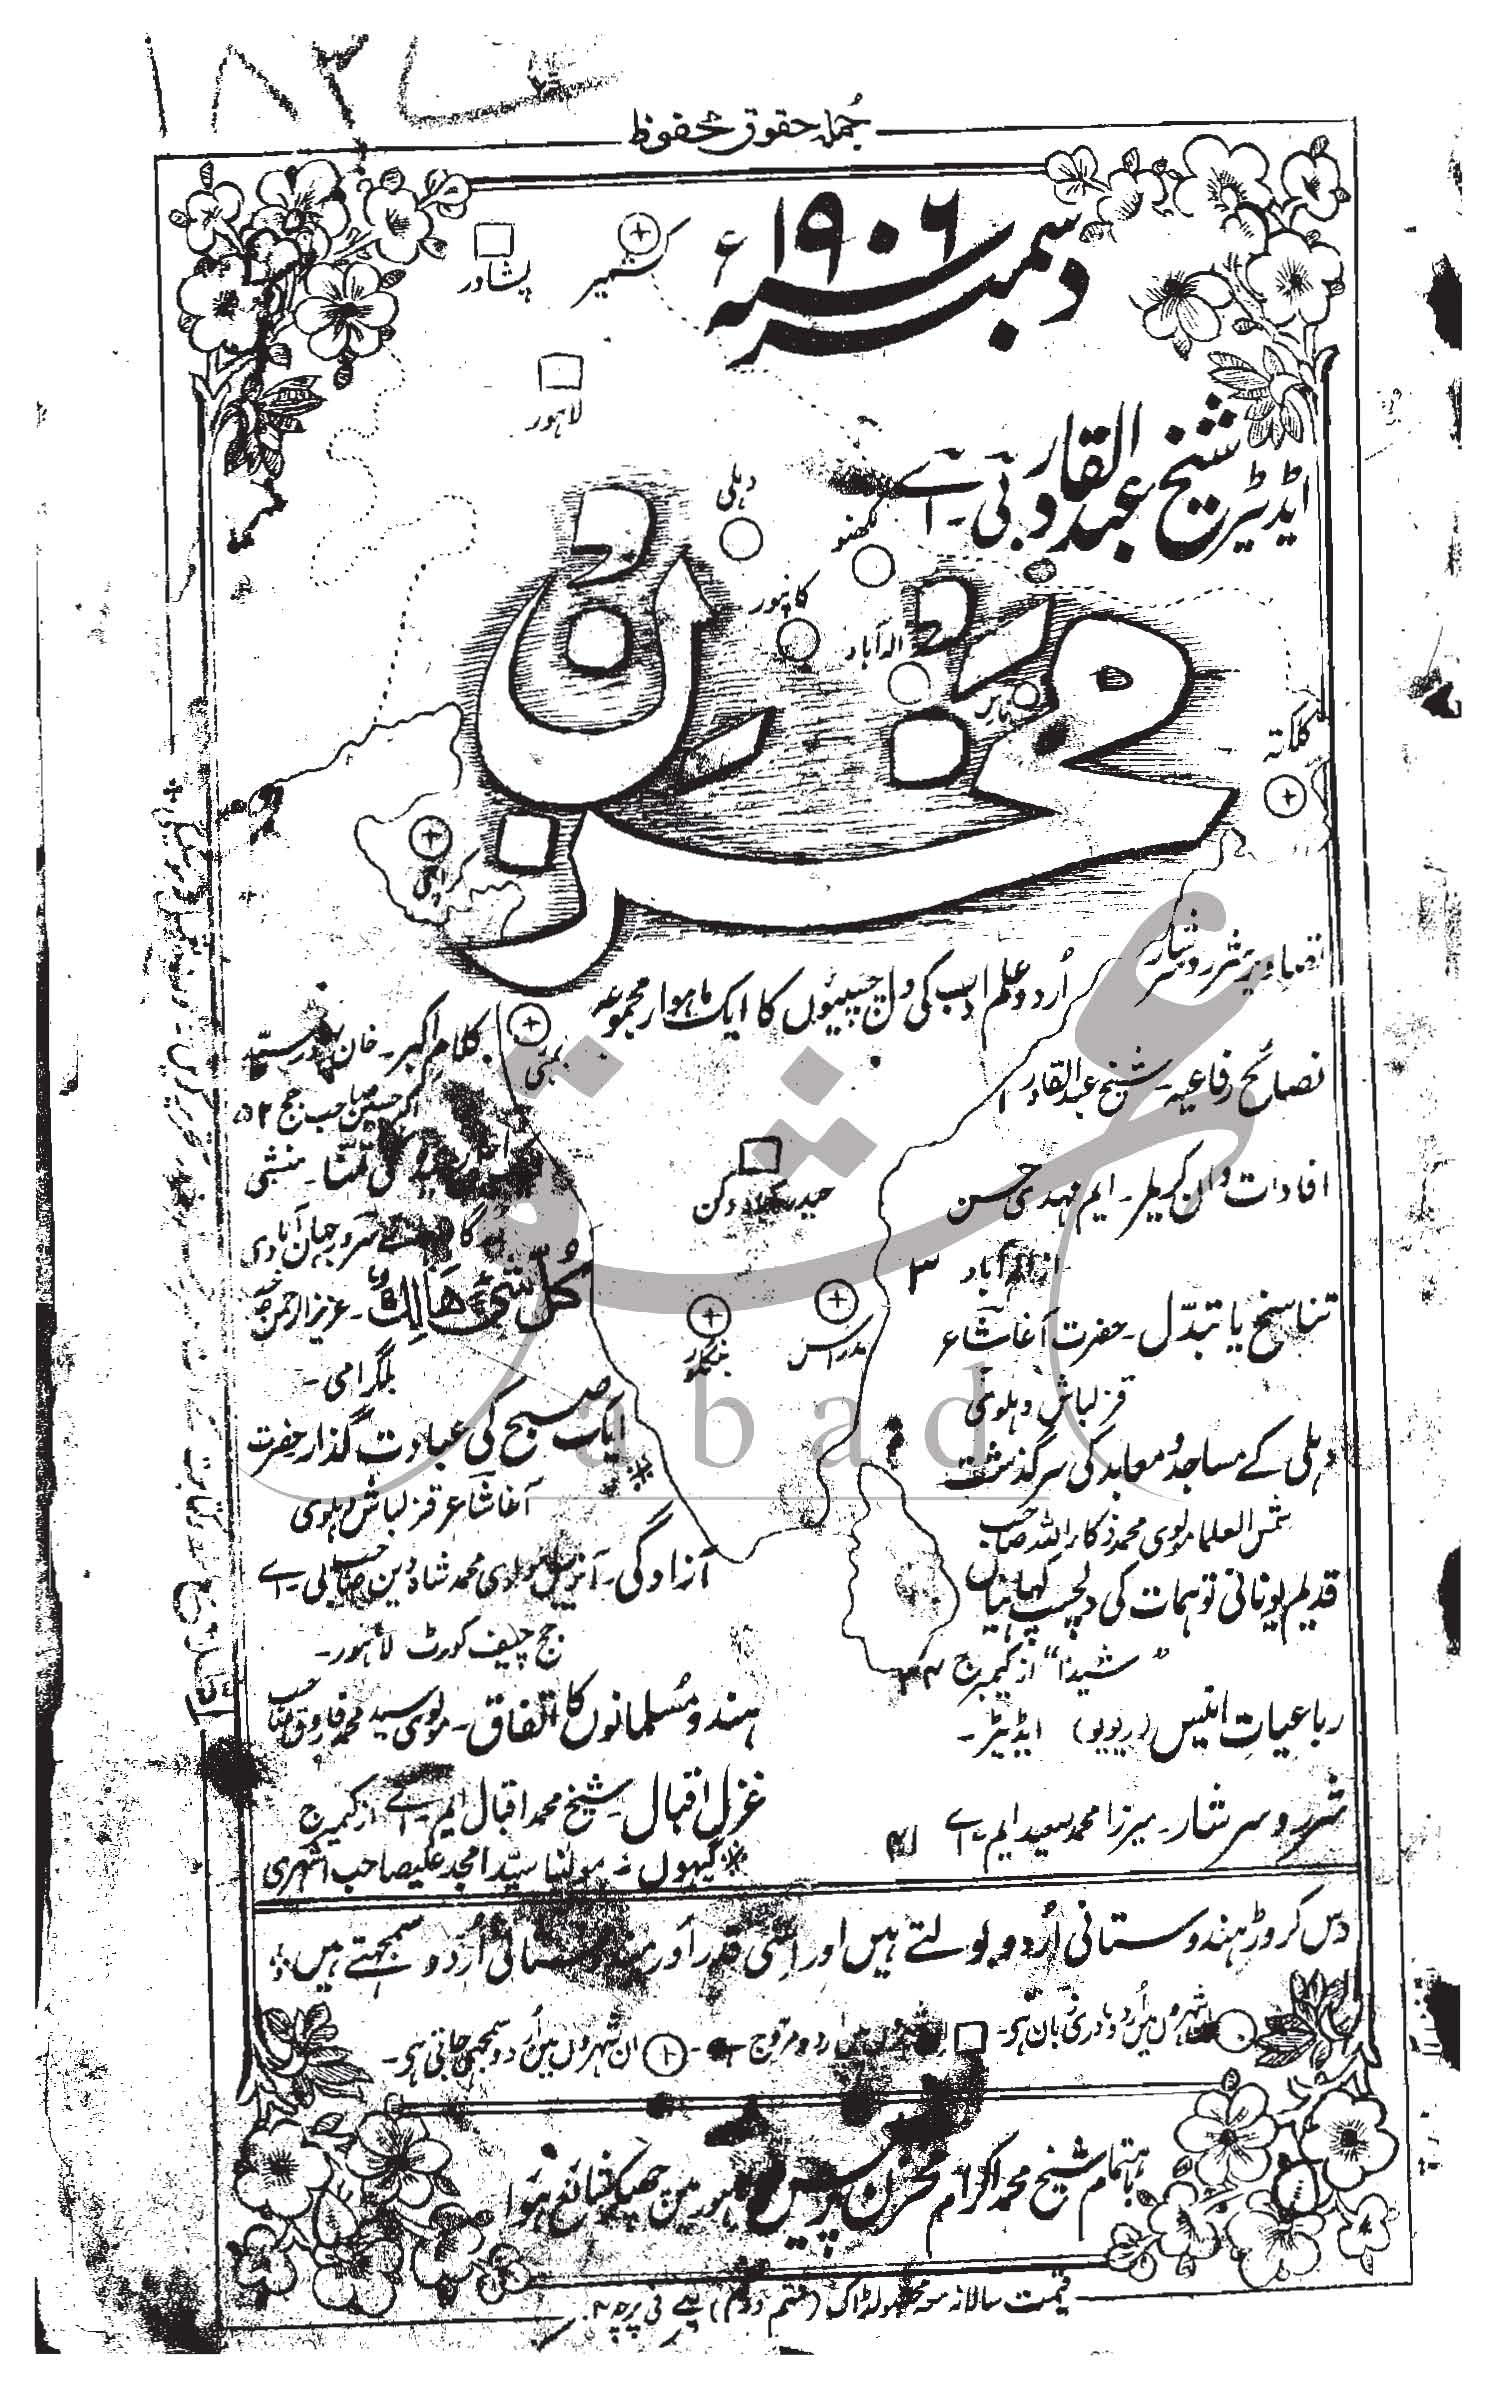 ۱۸۲
جُملہ حقوق محفوظ
دسمبر سنہ ۱۹۰۶ء
کشمیر
پشاور
لاہور
ایڈیٹر شیخ عبدالقادر بی۔ اے
دہلی
لکھنو
کانپور
الہ آباد
بنارس
کلکتہ
مخزن
کراچی
اُردو علم ادب کی دلچسپیوں کا ایک ماہوار مجموعہ
بمبئی
حیدرآباد دکن
بنگلور
مدراس
تصاویر شرر و سرشار
نصائح رفاعیہ۔ شیخ عبدالقادر ۱
افادات وان کریلر۔ ایم مہدی حسن
از الہ آباد ۳
تناسخ یا تبدّل۔ حضرت آغا شاعر
قزلباش دہلوی
دہلی کے مساجد و معابد کی سرگذشت
شمس العلما مولوی محمد ذکاء اللہ صاحب
قدیم یونانی توہمات کی دلچسپ کہانیاں
"شیدا" از کیمبرج ۳۴
رباعیات انیس (ریویو) ایڈیٹر۔
شرر و سرشار۔ میرزا محمد سعید ایم۔ اے ۴۱
کلام اکبر۔ خان بہادر سید
اکبر حسین صاحب جج ۵۲
کی تمنا۔ منشی
سرور جہان آبادی
كُلُّ شَيْءٍ هَالِكٌ۔ عزیز الرحمن
بلگرامی۔
ایک صبح کی عبادت گذار حضرت
آغا شاعر قزلباش دہلوی
آزادگی۔ آنریبل مولوی محمد شاہ دین صاحب بی۔ اے
جج چیف کورٹ لاہور۔
ہندو مُسلمانوں کا اتفاق۔ مولوی سید محمد فاروق صاحب
غزل اقبال۔ شیخ محمد اقبال ایم۔ اے از کیمبرج
گیہوں۔ مولٰنا سیّد امجد علیصاحب اشہری
دس کروڑ ہندوستانی اُردو بولتے ہیں اور اسی قدر اور ہندوستانی اُردو سمجھتے ہیں
شہروں میں اُردو مادری زبان ہی۔ ان شہروں میں اردو مروج ہے۔ ان شہروں میں اُردو سمجھی جاتی ہی۔
باہتمام شیخ محمد اکرام مخزن پریس لاہور میں چھپکر شائع ہوا
قیمت سالانہ معہ محصولڈاک (قسم دوم) فی پرچہ ۴
عشق
abad